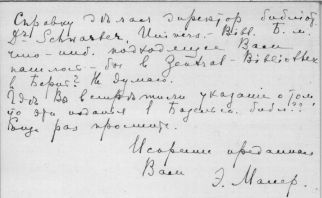 Справку дѣлалъ директоръ библіот.
Dr. Schwarber, Univers.-Bibl. Б. м.
что-ниб. подходящее Вамъ
нашлось-бы въ Zentral-Bibliothek
въ Бернѣ? Не думаю.
Гдѣ Вы встрѣтили указаніе о томъ
что эти изданія въ Базельск. библ??!
Еще разъ простите.
Искренно преданный
Вамъ
Э. Малер.